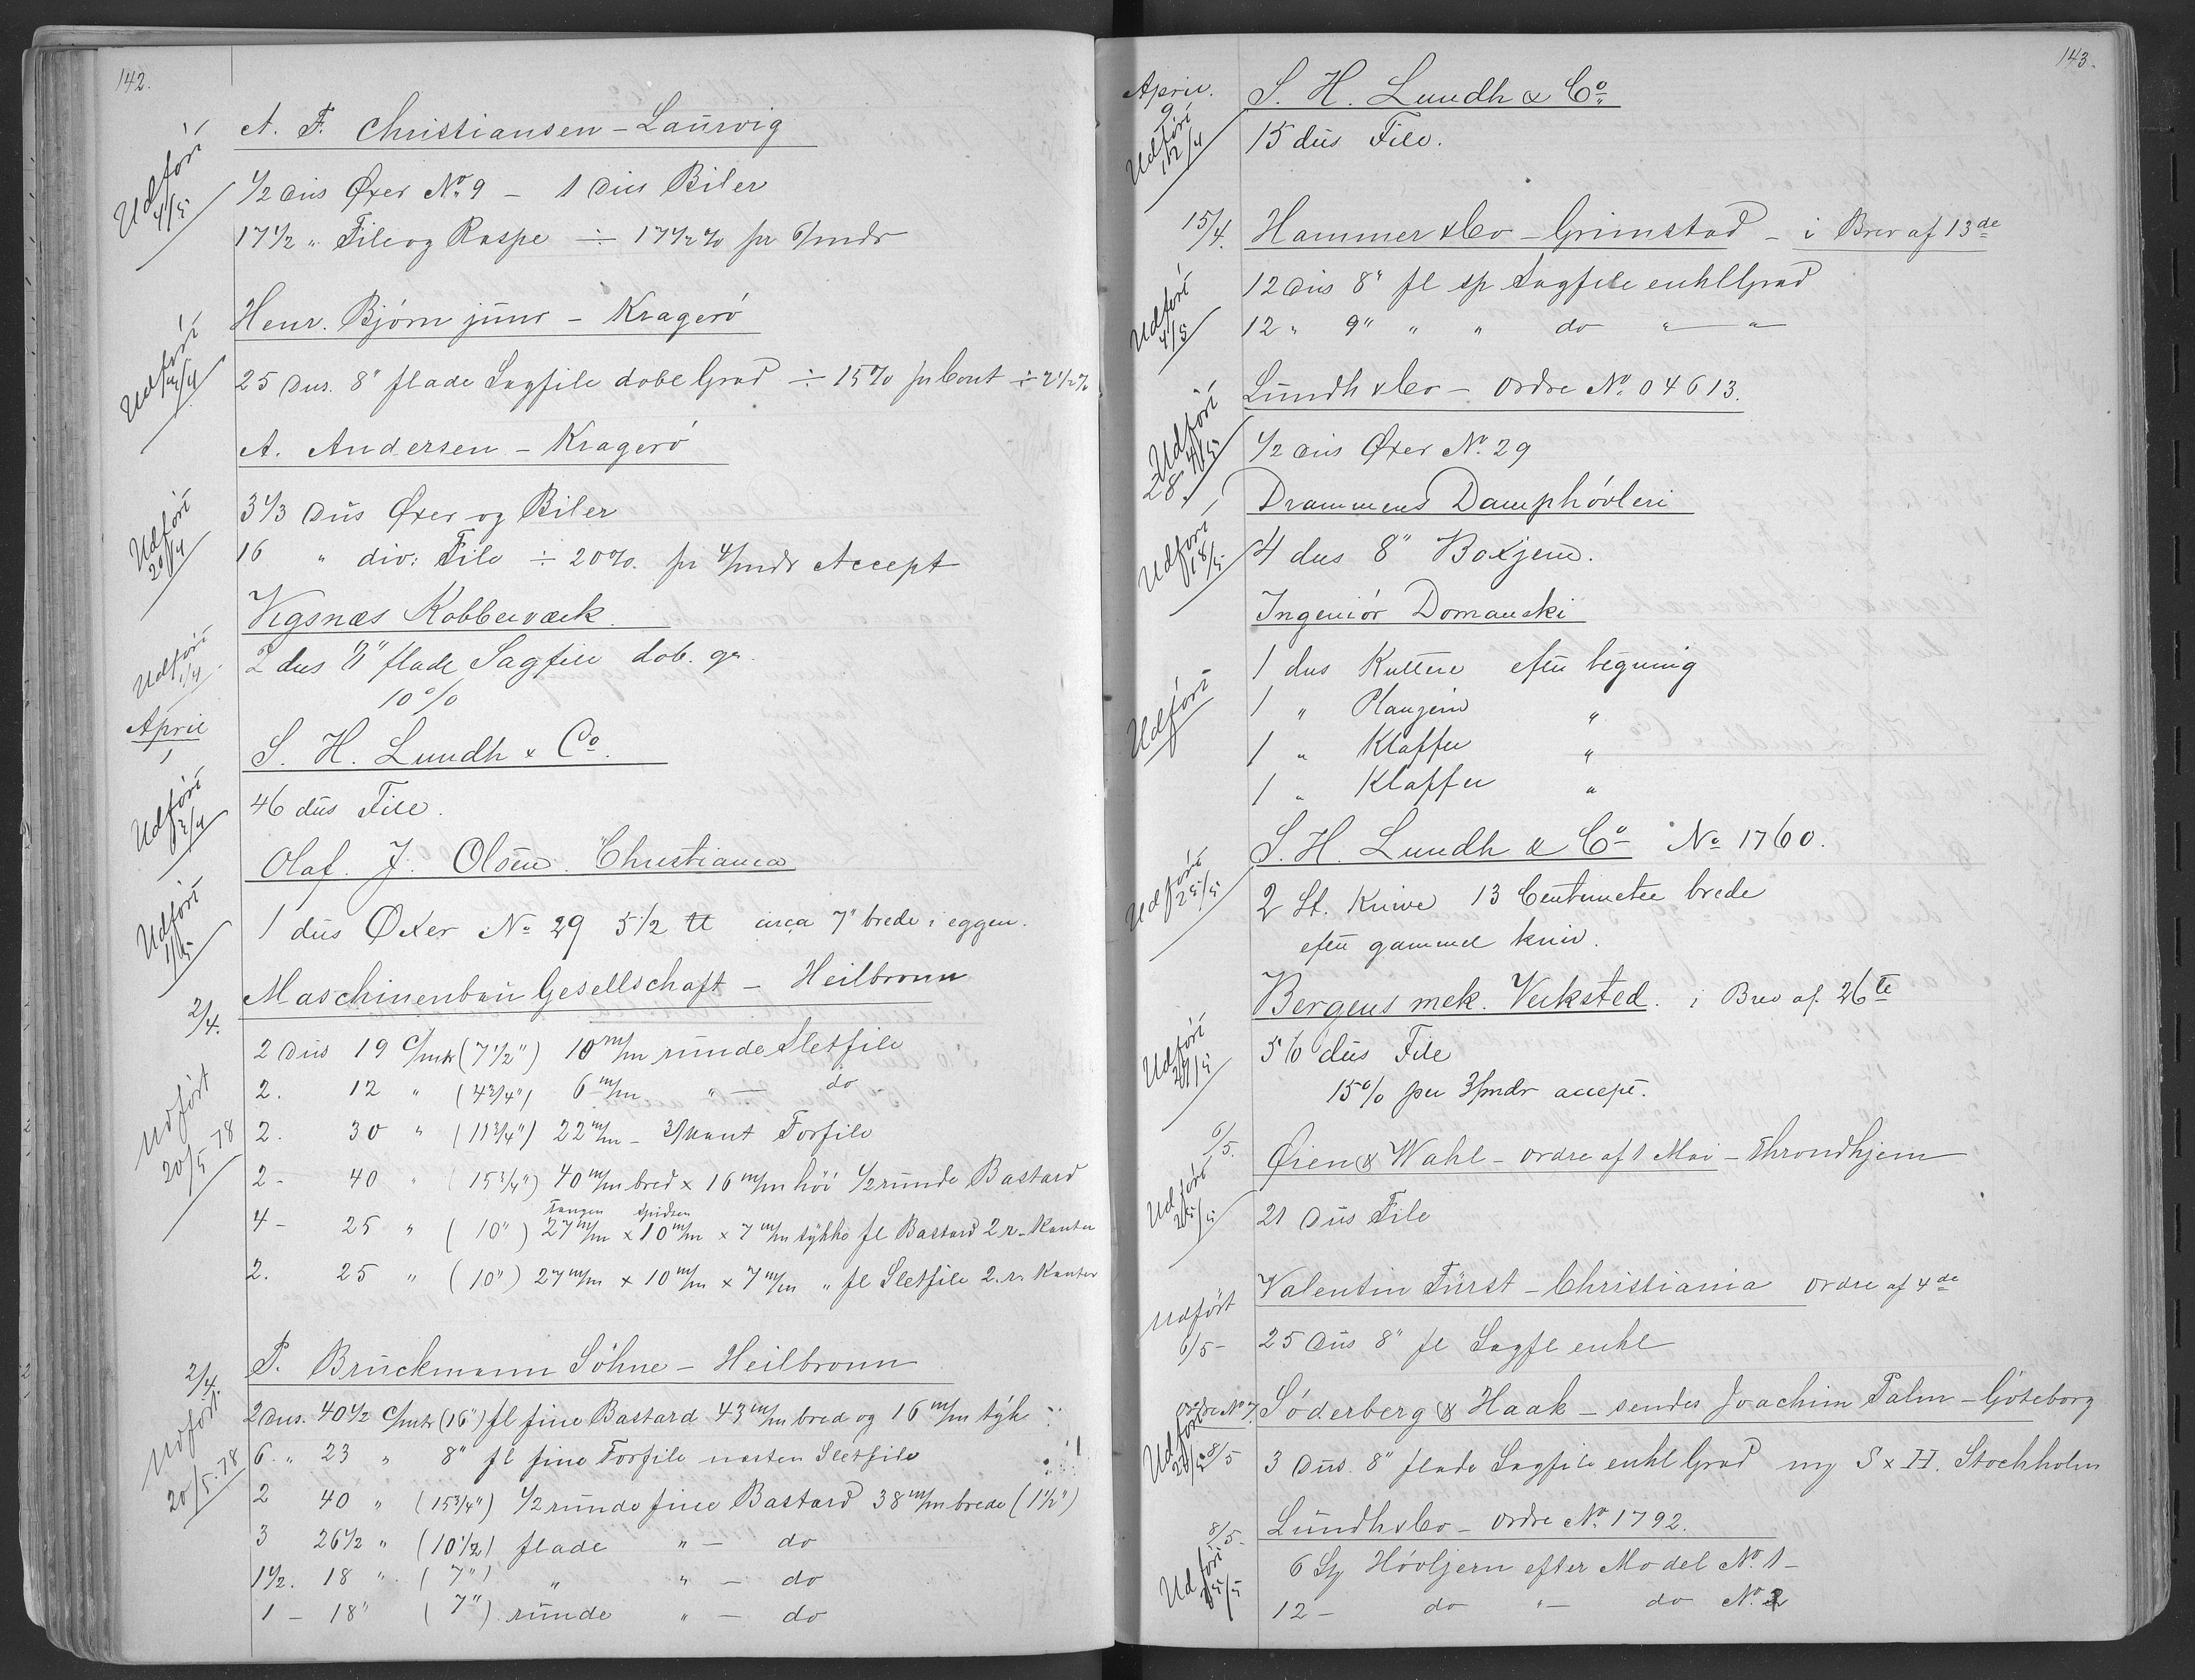 142.
A. F. Christiansen – Laurvig
Udført 4/5
1/2 Dus Øxer No. 9 – 1 Dus Biler
17 1/2 „ File og Raspe ÷ 17 1/2 % pr 6/mdr
Henr. Bjørn junr – Kragerø
Udført
25 Dus. 8" flade Sagfile dobe Grad ÷ 15% pr Cont ÷ 2 1/2 %
A. Andersen – Kragerø
Udført 20/4
3 1/3 Dus Øxer og Biler
16 „ div: File ÷ 20%. pr 4/mdr Accept
Vigsnæs Kobberværk.
Udført
2 dus 8" flade Sagfile dob. gr.
10%
April
1
S. H. Lundh & Co.
Udført
46 dus File.
Olaf. J. Olsen. Christiania
Udført
1 dus Øxer No 29 5 1/2 ℔ circa 7" brede i eggen.
2/4.
Maschinenbau Gesellschaft – Heilbronn
2 Dus 19 c/mtr (7 1/2") 10 m/m runde Sletfile
2. 12 „ (4 3/4") 6 m/m „ — do
Udført 20/5 78
2. 30 „ (11 3/4") 22 m/m – 3/kant Forfile
2 – 40 „ (15 3/4") 40 m/m bred x 16 m/m høi 1/2 runde Bastard
Tangen spidsen
4 – 25 „ (10") 27 m/m x 10 m/m x 7 m/m tykke fl Bastard 2 r. Kanter
2. 25 „ (10") 27 m/m x 10 m/m x 7 m/m „ fl Sletfile 2. r. Kanter
2/4.
P. Bruckmann Söhne – Heilbronn
Udført 20/5. 78
2 Dus. 40 1/2 c/mtr (16") fl fine Bastard 43 m/m bred og 16 m/m tyk
6. „ 23 „ 8" fl fine Forfile næsten Sletfile
2 40 „ (15 3/4") 1/2 runde fine Bastard 38 m/m brede (1 1/2")
3 26 1/2 „ (10 1/2) flade „ – do
1 1/2. 18 „ (7") „ „ – do
1 – 18" (7") runde „ – do
143.
April.
9
S. H. Lundh & Co.
Udført 12/4
15 dus File.
15/4.
Hammer & Co – Grimstad – i Brev af 13de
Udført 4/5
12 Dus 8" fl sp Sagfile enkl Grad
12 „ 9" „ „ do „ — „
Lundh & Co – Ordre No. 04613.
Udført 4/5
1/2 Dus Øxer No. 29
28.
Drammens Damphøvleri
Udført 18/5
4 dus 8" Boxjern.
Ingeniør Domanski
Udført
1 dus Kuttere efter tegning
1 „ Planjern „
1 „ Klaffer „
1 „ Klaffer „
S. H. Lundh & Co No 1760.
Udført 25/5
2 St. Knive 13 Centimeter brede
efter gammel kniv.
Bergens mek. Verksted. i Brev af 26te
Udført 29/5
56 dus File
15% per 3/mdr accept.
6/5.
Øien & Wahl – ordre af 1 Mai – Throndhjem
Udført
21 Dus File
Valentin Fürst – Christiania ordre af 4de
Udført
6/5 –
25 Dus 8" fl Sagfl enkl
Ordre No 7.
Söderberg & Haak – sendes Joachim Palm – Göteborg
Udført
8/5
3 Dus. 8" flade Sagfile enkl Grad mg S x H. Stockholm
8/5.
Lundh & Co – Ordre No. 1792.
Udført
6 St Høvljern efter Model No. 1 –
12 – do „– do No. 2